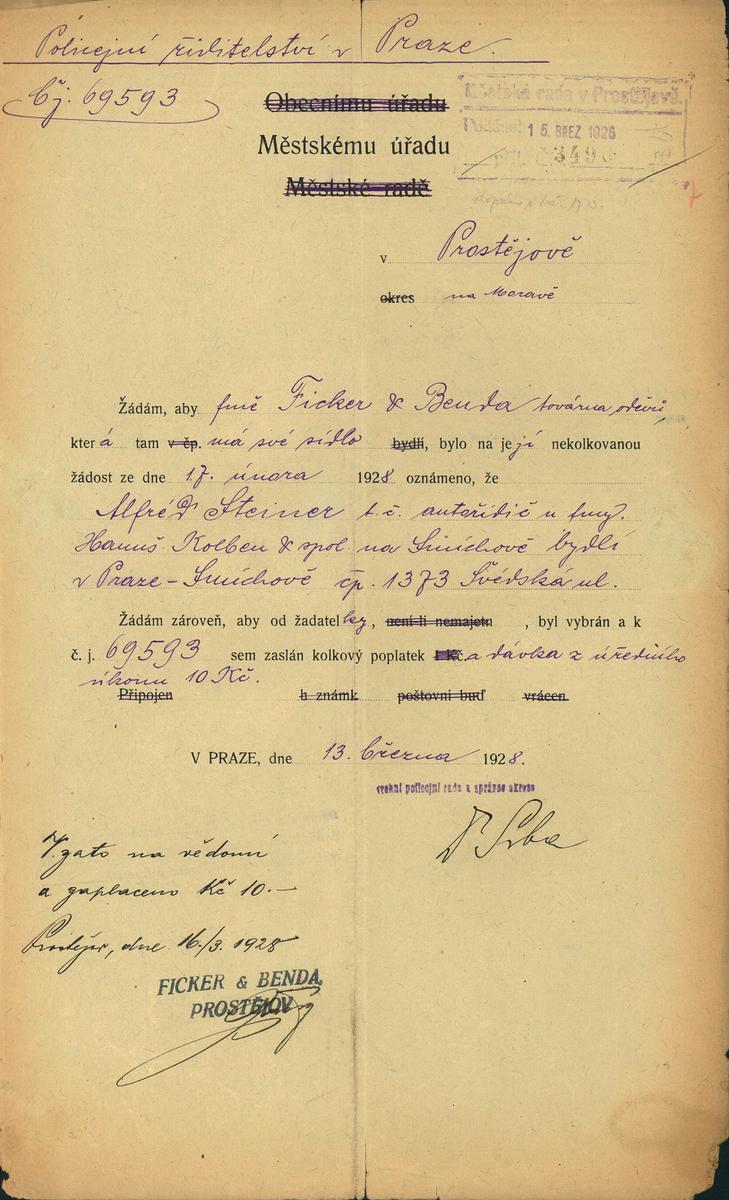 Policejní ředitelství v Praze.
Čj. 69593
Obecnímu úřadu
Městská rada v Prostějově.
Podáno: 15. BŘEZ 1928
Městskému úřadu
Městské radě
v Prostějově
okres na Moravě
Žádám, aby fmě Ficker & Benda továrna oděvů,
která tam v čp. má své sídlo bydlí, bylo na její nekolkovanou
žádost ze dne 17. února 1928 oznámeno, že
Alfréd Steiner t. č. autořidič u fmy.
Hanuš Kolben & spol. na Smíchově bydlí
v Praze-Smíchově čp. 1373 Švédská ul.
Žádám zároveň, aby od žadatelky, není-li nemajetn , byl vybrán a k
č. j. 69593 sem zaslán kolkový poplatek 1 Kč a dávka z úředního
úkonu 10 Kč.
Připojen h známk poštovní buď vrácen
V PRAZE, dne 13. března 1928.
vrchní policejní rada a správce okresu
Dr Srba
Vzato na vědomí
a zaplaceno Kč 10.—
Prostějov, dne 16./3. 1928
FICKER & BENDA,
PROSTĚJOV